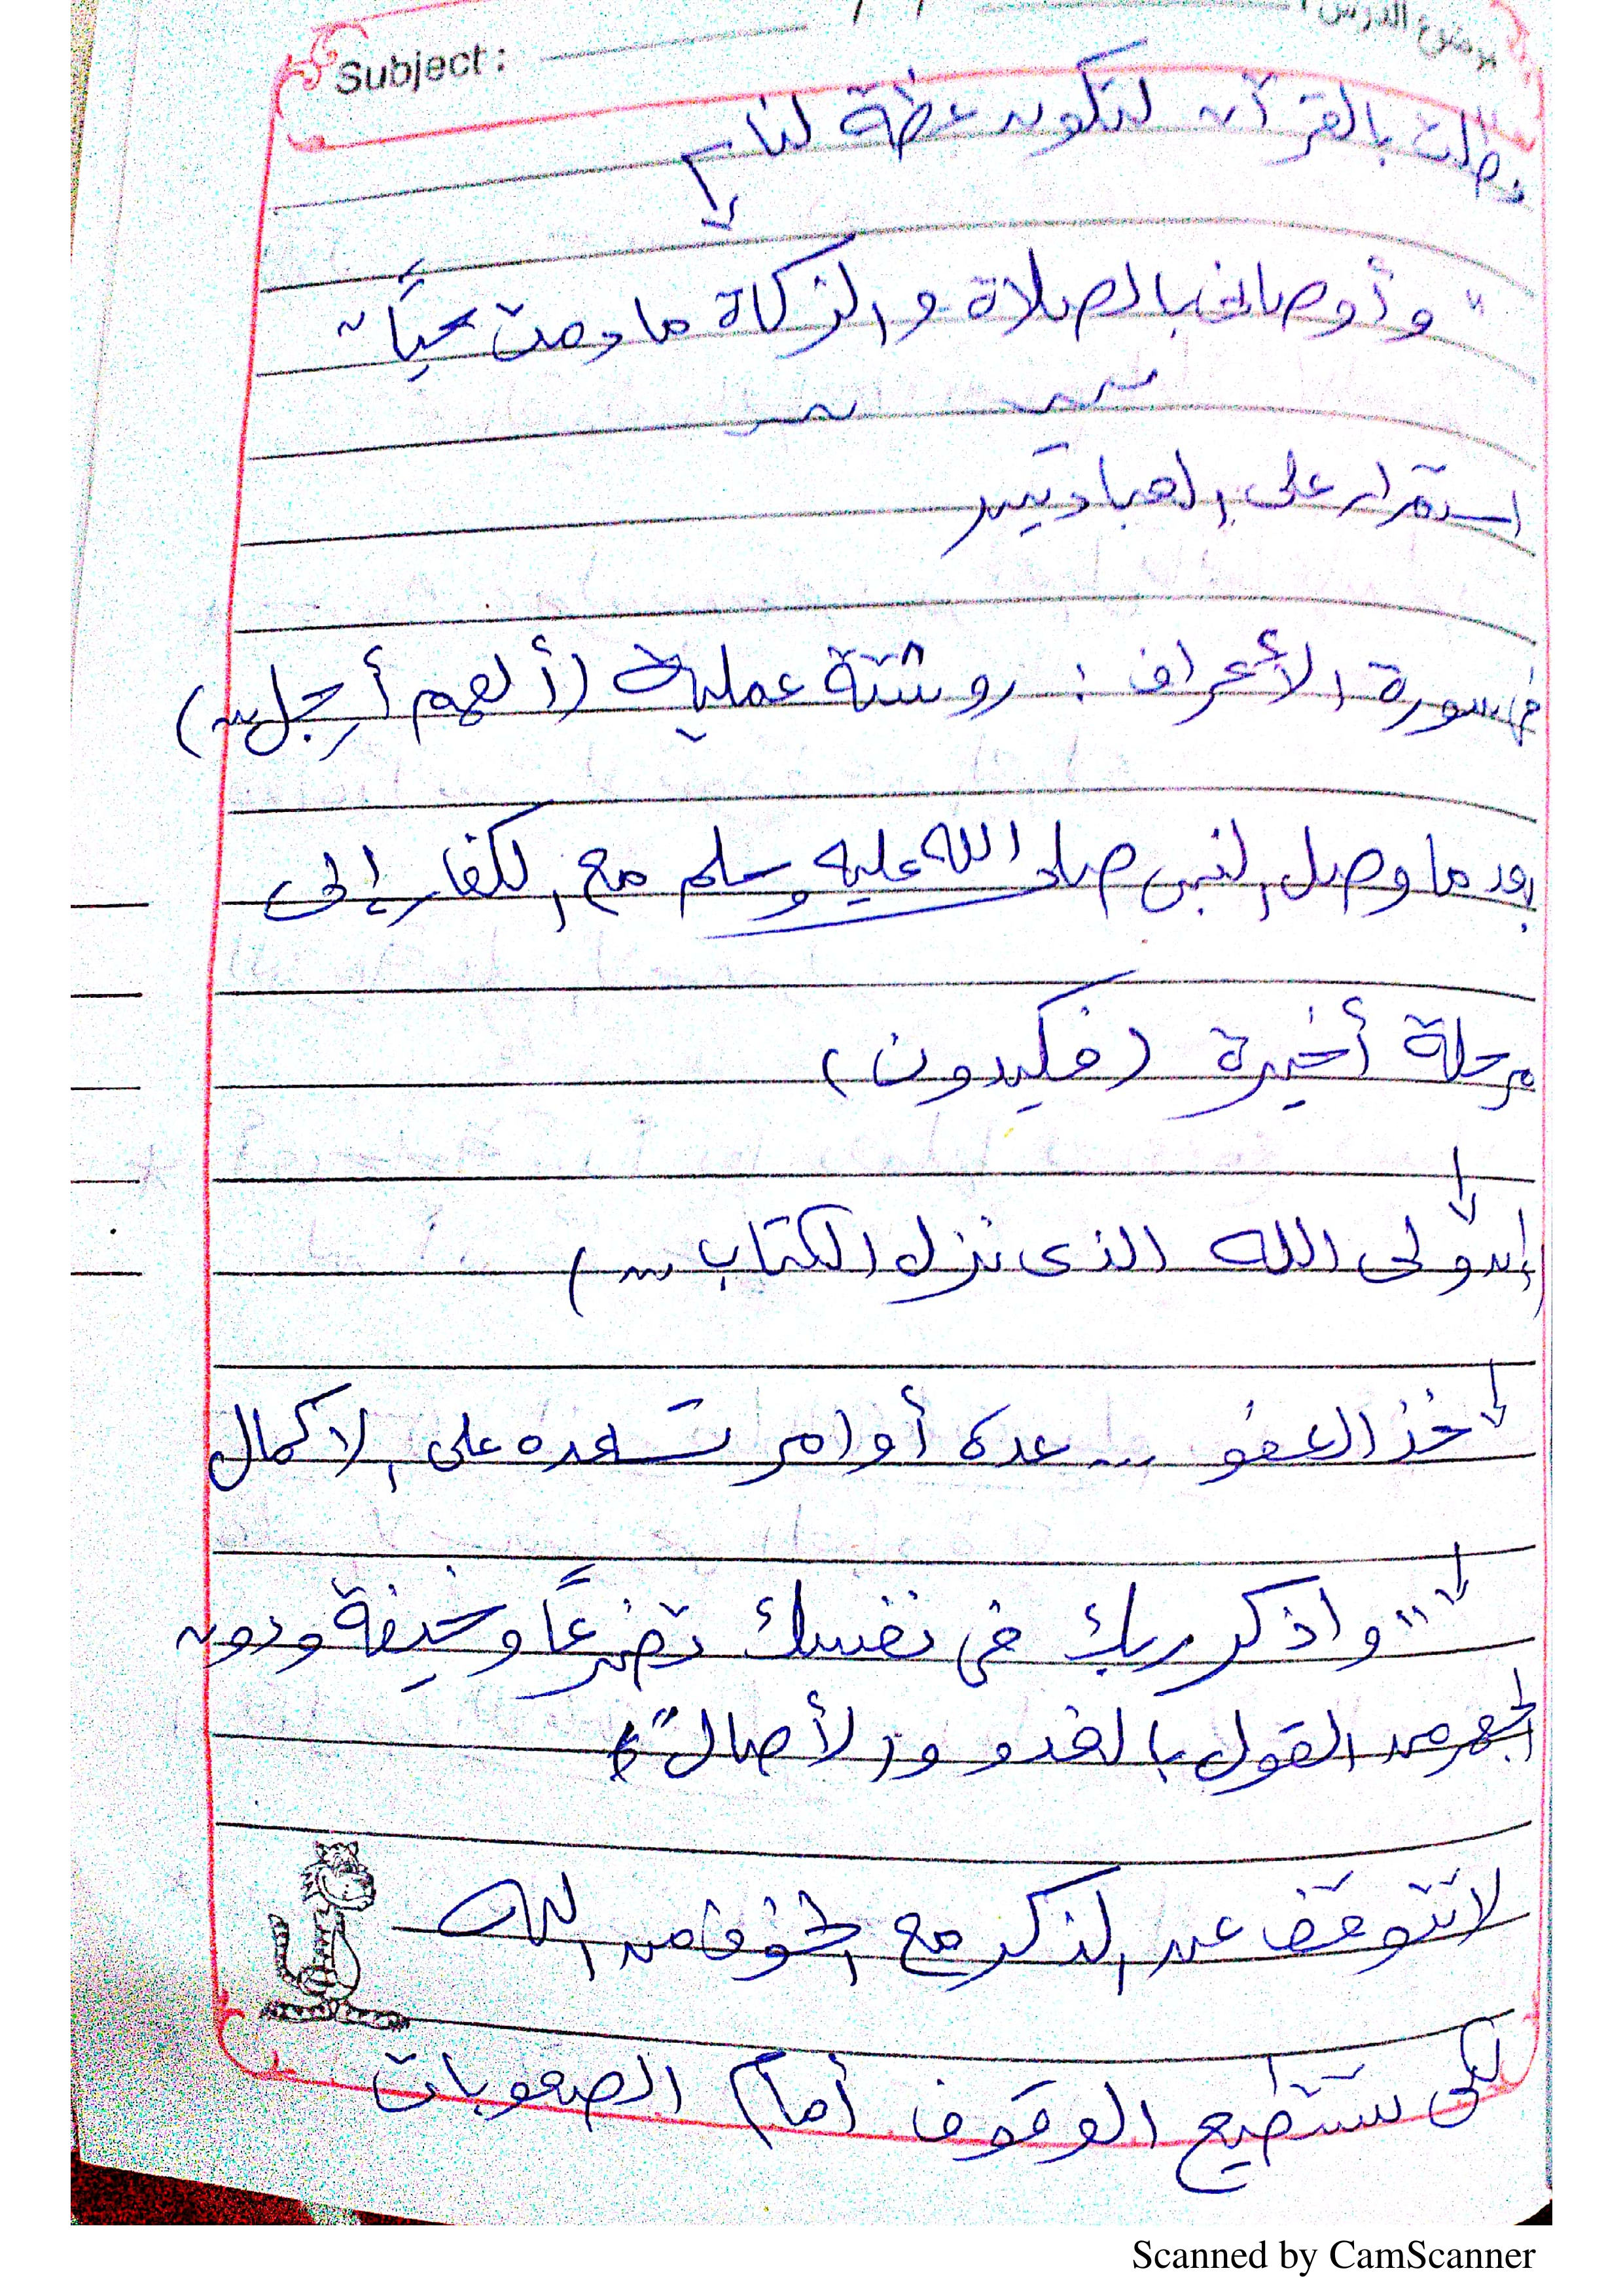 Subject :
موضوع الدرس :
بالقرآن لتكون عظة لنا
" وأوصانى بالصلاة والزكاة مادمت حيًا "
استمرار على العبادتين
فى سورة الأعراف : روشتة عملية (ألهم أرجل ...)
بعد ما وصل النبى صلى الله عليه وسلم مع الكفار إلى
مرحلة أخيرة (فكيدون)
(إن ولى الله الذى نزل الكتاب ...)
خذ العفو ... عدة أوامر تسعده على الاكمال
" واذكر ربك فى نفسك تضرعًا وخيفة ودون
الجهر من القول بالغدو والأصال "
لا تتوقف عن الذكر مع الخوف من الله
لكى تستطيع الوقوف أمام الصعوبات
Scanned by CamScanner